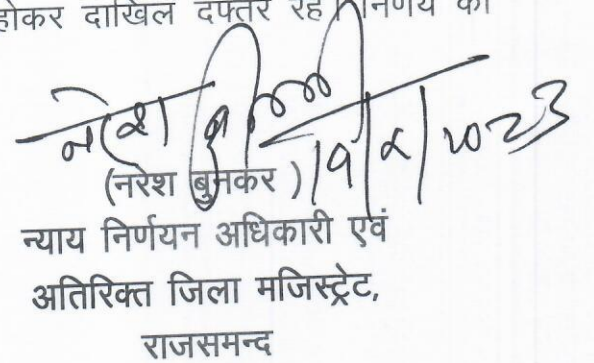 होकर दाखिल दफ्तर रहे। निर्णय की
नरेश
(नरेश बुनकर )
न्याय निर्णयन अधिकारी एवं
अतिरिक्त जिला मजिस्ट्रेट,
राजसमन्द